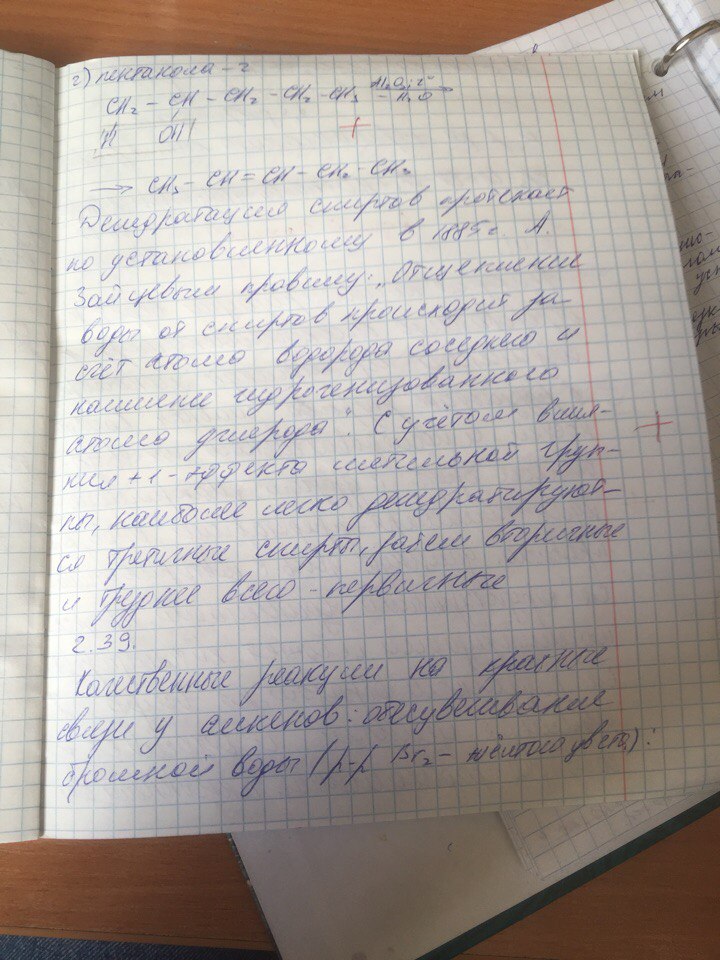 г) пентанола-2
CH₂ – CH – CH₂ – CH₂ – CH₃ Al₂O₃; t° →
– H₂O
H OH
→ CH₃ – CH = CH – CH₂ – CH₃
Дегидратация спиртов протекает
по установленному в 1885г. А.
Зайцевым правилу: „Отщепление
воды от спиртов происходит за
счёт атома водорода соседнего и
наименее гидрогенизованного
атома углерода". С учётом влия-
ния +I-эффекта метильной груп-
пы, наиболее легко дегидратируют-
ся третичные спирты, затем вторичные
и труднее всего - первичные
2.39.
Качественные реакции на кратные
связи у алкенов: обесцвечивание
бромной воды (р-р Br₂ – жёлтого цвета):